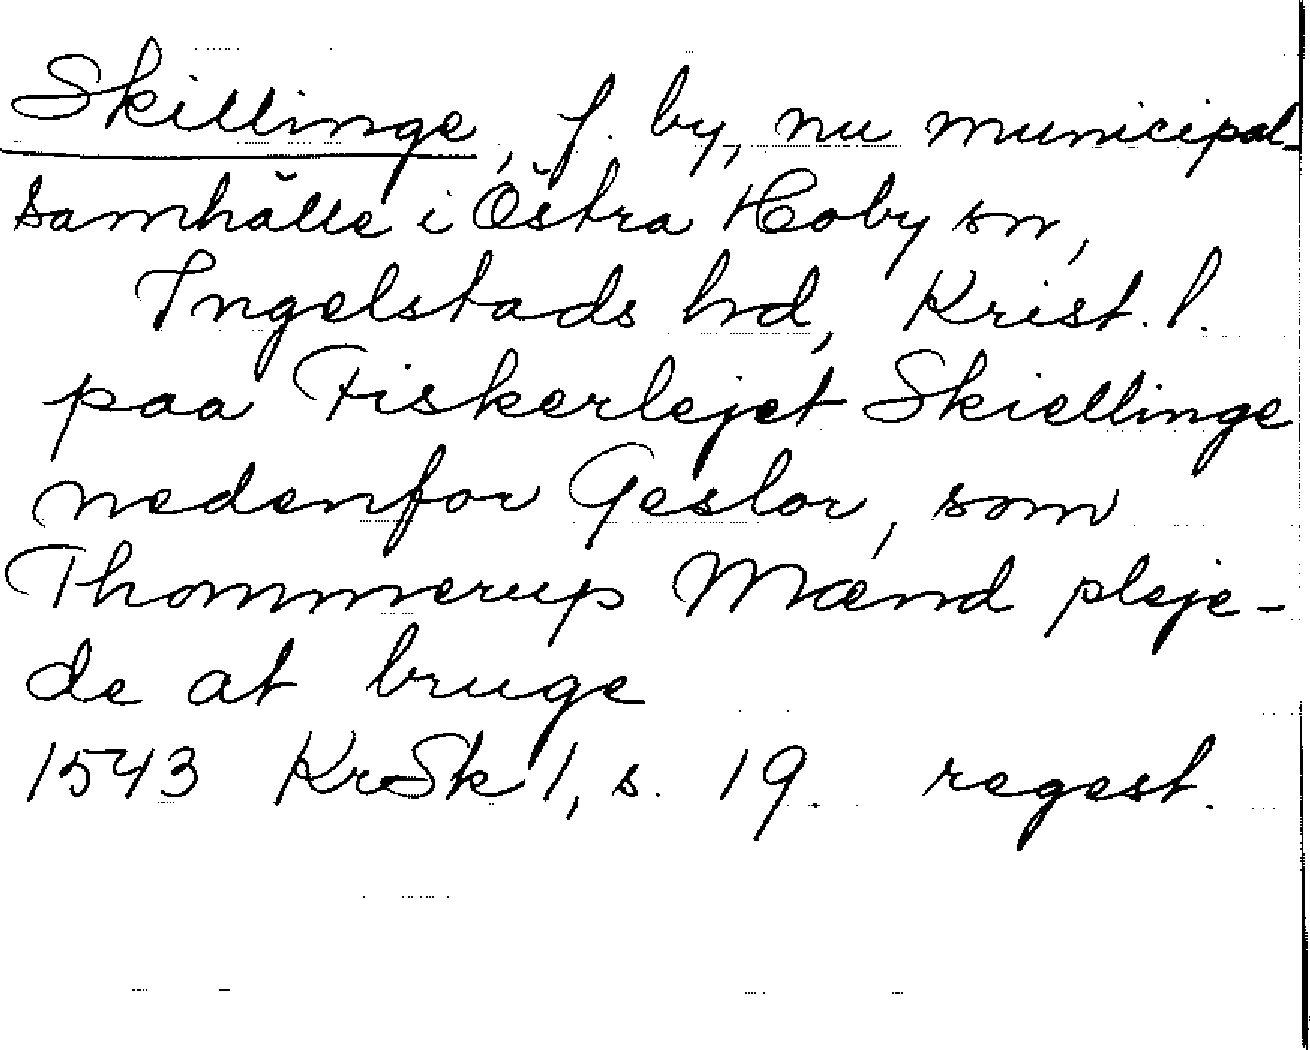 Skillinge, f. by, nu municipal-
samhälle i Östra Hoby sn,
Ingelstads hd, Krist. l.
paa Fiskerlejet Skiellinge
nedenfor Geslor, som
Thommerup Mænd pleje-
de at bruge
1543 KrSk 1, s. 19. regest.